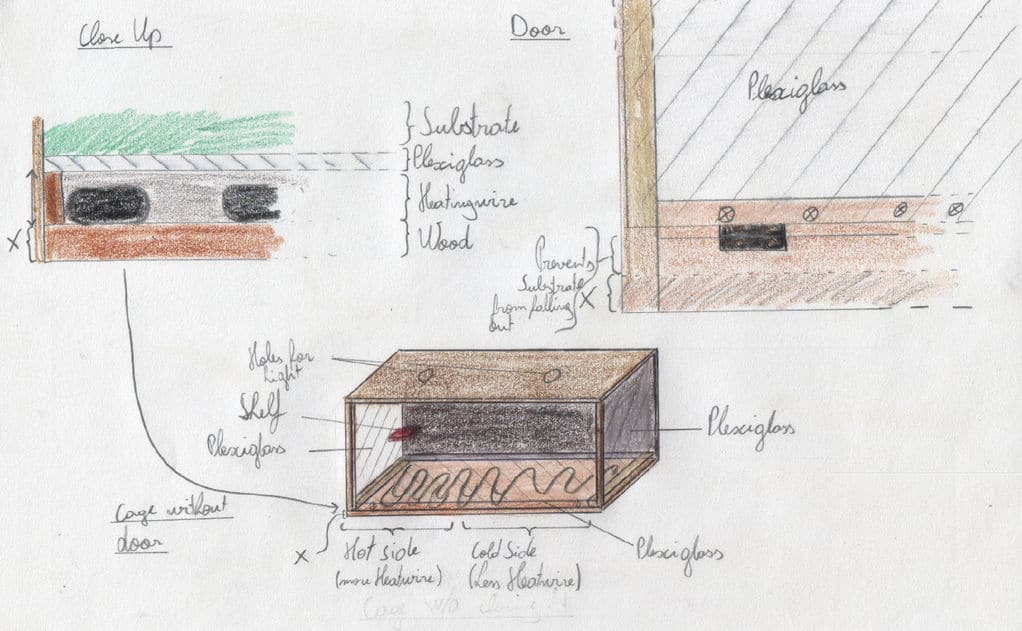 Close Up
Door
Plexiglass
Substrate
Plexiglass
Heatingwire
Wood
X
Prevents
Substrate
from falling
out
X
Holes for
Light
Shelf
Plexiglass
Plexiglass
Cage without
door
X
Hot side
(more Heatwire)
Cold Side
(Less Heatwire)
Plexiglass
Cage W/O